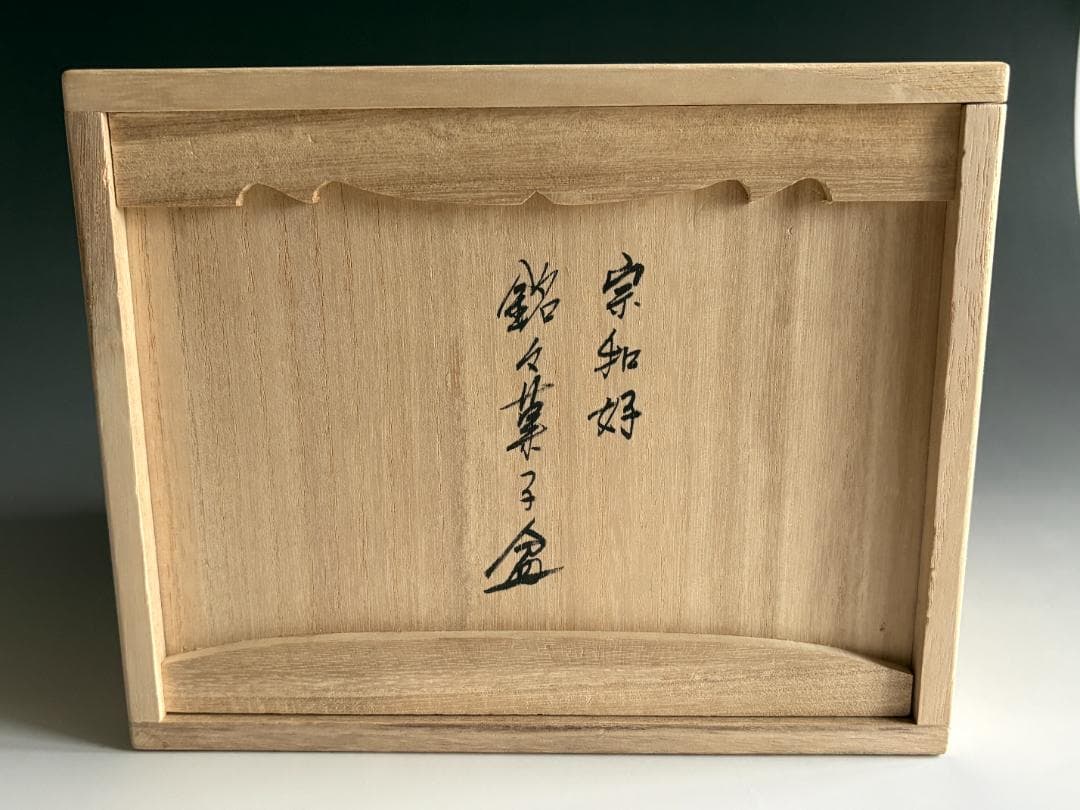 宗和好
銘々菓子盆